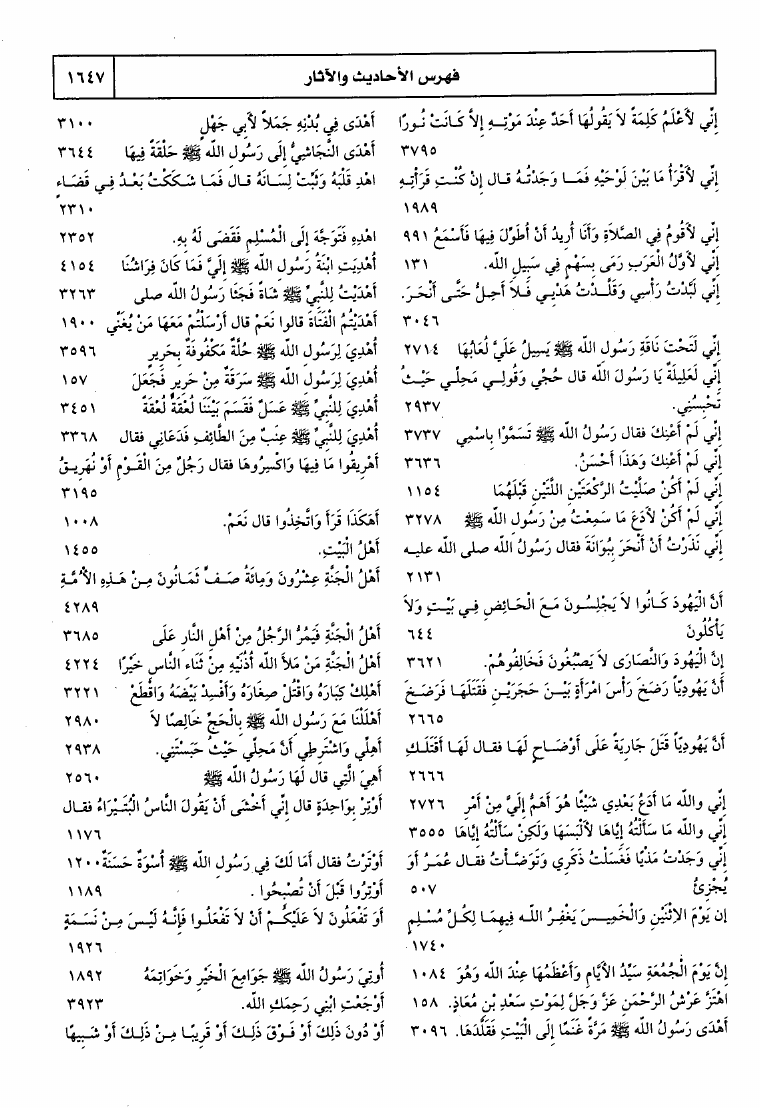 فهرس الأحاديث والآثار
١٦٤٧
إِنِّي لأَعْلَمُ كَلِمَةً لاَ يَقُولُهَا أَحَدٌ عِنْدَ مَوْتِهِ إِلاَّ كَانَتْ نُورًا
٣٧٩٥
إِنِّي لأَقْرَأُ مَا بَيْنَ لَوْحَيْهِ فَمَا وَجَدْتُهُ قال إِنْ كُنْتِ قَرَأْتِهِ
١٩٨٩
إِنِّي لأَقُومُ فِي الصَّلاَةِ وَأَنَا أُرِيدُ أَنْ أُطَوِّلَ فِيهَا فَأَسْمَعُ ٩٩١
إِنِّي لأَوَّلُ الْعَرَبِ رَمَى بِسَهْمٍ فِي سَبِيلِ اللّه. ١٣١
إِنِّي لَبَّدْتُ رَأْسِي وَقَلَّدْتُ هَدْيِي فَلاَ أَحِلُّ حَتَّى أَنْحَرَ.
٣٠٤٦
إِنِّي لَتَحْتَ نَاقَةِ رَسُولِ اللّه ﷺ يَسِيلُ عَلَيَّ لُعَابُهَا ٢٧١٤
إِنِّي لَعَلِيلَةٌ يَا رَسُولَ اللّه قال حُجِّي وَقُولِي مَحِلِّي حَيْثُ
تَحْبِسُنِي. ٢٩٣٧
إِنِّي لَمْ أَعْنِكَ فقال رَسُولُ اللّه ﷺ تَسَمَّوْا بِاسْمِي ٣٧٣٧
إِنِّي لَمْ أَعْنِكَ وَهَذَا أَحْسَنُ. ٣٦٣٦
إِنِّي لَمْ أَكُنْ صَلَّيْتُ الرَّكْعَتَيْنِ اللَّتَيْنِ قَبْلَهُمَا ١١٥٤
إِنِّي لَمْ أَكُنْ لأَدَعَ مَا سَمِعْتُ مِنْ رَسُولِ اللّه ﷺ ٣٢٧٨
إِنِّي نَذَرْتُ أَنْ أَنْحَرَ بِبُوَانَةَ فقال رَسُولُ اللّه صلى الله عليه
٢١٣١
أَنَّ الْيَهُودَ كَانُوا لاَ يَجْلِسُونَ مَعَ الْحَائِضِ فِي بَيْتٍ وَلاَ
يَأْكُلُونَ ٦٤٤
إِنَّ الْيَهُودَ وَالنَّصَارَى لاَ يَصْبُغُونَ فَخَالِفُوهُمْ. ٣٦٢١
أَنَّ يَهُودِيّاً رَضَخَ رَأْسَ امْرَأَةٍ بَيْنَ حَجَرَيْنِ فَقَتَلَهَا فَرَضَخَ
٢٦٦٥
أَنَّ يَهُودِيّاً قَتَلَ جَارِيَةً عَلَى أَوْضَاحٍ لَهَا فقال لَهَا أَقَتَلَكِ
٢٦٦٦
إِنِّي واللّه مَا أَدَعُ بَعْدِي شَيْئًا هُوَ أَهَمُّ إِلَيَّ مِنْ أَمْرِ ٢٧٢٦
إِنِّي واللّه مَا سَأَلْتُهُ إِيَّاهَا لأَلْبَسَهَا وَلَكِنْ سَأَلْتُهُ إِيَّاهَا ٣٥٥٥
إِنِّي وَجَدْتُ مَذْيًا فَغَسَلْتُ ذَكَرِي وَتَوَضَّأْتُ فقال عُمَرُ أَوَ
يُجْزِئُ ٥٠٧
إن يَوْمَ الاِثْنَيْنِ وَالْخَمِيسَ يَغْفِرُ اللّه فِيهِمَا لِكُلِّ مُسْلِمٍ
١٧٤٠
إِنَّ يَوْمَ الْجُمُعَةِ سَيِّدُ الأَيَّامِ وَأَعْظَمُهَا عِنْدَ اللّه وَهُوَ ١٠٨٤
اهْتَزَّ عَرْشُ الرَّحْمَنِ عَزَّ وَجَلَّ لِمَوْتِ سَعْدِ بْنِ مُعَاذٍ. ١٥٨
أَهْدَى رَسُولُ اللّه ﷺ مَرَّةً غَنَمًا إِلَى الْبَيْتِ فَقَلَّدَهَا. ٣٠٩٦
أَهْدَى فِي بُدْنِهِ جَمَلاً لأَبِي جَهْلٍ ٣١٠٠
أَهْدَى النَّجَاشِيُّ إِلَى رَسُولِ اللّه ﷺ حَلْقَةً فِيهَا ٣٦٤٤
اهْدِ قَلْبَهُ وَثَبِّتْ لِسَانَهُ قال فَمَا شَكَكْتُ بَعْدُ فِي قَضَاءٍ
٢٣١٠
اهْدِهِ فَتَوَجَّهَ إِلَى الْمُسْلِمِ فَقَضَى لَهُ بِهِ. ٢٣٥٢
أُهْدِيَتِ ابْنَةُ رَسُولِ اللّه ﷺ إِلَيَّ فَمَا كَانَ فِرَاشُنَا ٤١٥٤
أَهْدَيْتُ لِلنَّبِيِّ ﷺ شَاةً فَجَثَا رَسُولُ اللّه صلى ٣٢٦٣
أَهْدَيْتُمُ الْفَتَاةَ قالوا نَعَمْ قال أَرْسَلْتُمْ مَعَهَا مَنْ يُغَنِّي ١٩٠٠
أُهْدِيَ لِرَسُولِ اللّه ﷺ حُلَّةٌ مَكْفُوفَةٌ بِحَرِيرٍ ٣٥٩٦
أُهْدِيَ لِرَسُولِ اللّه ﷺ سَرَقَةٌ مِنْ حَرِيرٍ فَجَعَلَ ١٥٧
أُهْدِيَ لِلنَّبِيِّ ﷺ عَسَلٌ فَقَسَمَ بَيْنَنَا لُعْقَةً لُعْقَةً ٣٤٥١
أُهْدِيَ لِلنَّبِيِّ ﷺ عِنَبٌ مِنَ الطَّائِفِ فَدَعَانِي فقال ٣٣٦٨
أَهْرِيقُوا مَا فِيهَا وَاكْسِرُوهَا فقال رَجُلٌ مِنَ الْقَوْمِ أَوْ نُهَرِيقُ
٣١٩٥
أَهَكَذَا قَرَأَ وَاتَّخِذُوا قال نَعَمْ. ١٠٠٨
أَهْلُ الْبَيْتِ. ١٤٥٥
أَهْلُ الْجَنَّةِ عِشْرُونَ وَمِائَةُ صَفٍّ ثَمَانُونَ مِنْ هَذِهِ الأُمَّةِ
٤٢٨٩
أَهْلُ الْجَنَّةِ فَيَمُرُّ الرَّجُلُ مِنْ أَهْلِ النَّارِ عَلَى ٣٦٨٥
أَهْلُ الْجَنَّةِ مَنْ مَلأَ اللّه أُذُنَيْهِ مِنْ ثَنَاءِ النَّاسِ خَيْرًا ٤٢٢٤
أَهْلِكْ كِبَارَهُ وَاقْتُلْ صِغَارَهُ وَأَفْسِدْ بَيْضَهُ وَاقْطَعْ ٣٢٢١
أَهْلَلْنَا مَعَ رَسُولِ اللّه ﷺ بِالْحَجِّ خَالِصًا لاَ ٢٩٨٠
أَهِلِّي وَاشْتَرِطِي أَنَّ مَحِلِّي حَيْثُ حَبَسْتَنِي. ٢٩٣٨
أَهِيَ الَّتِي قال لَهَا رَسُولُ اللّه ﷺ ٢٥٦٠
أَوْتِرْ بِوَاحِدَةٍ قال إِنِّي أَخْشَى أَنْ يَقُولَ النَّاسُ الْبُتَيْرَاءُ فقال
١١٧٦
أَوْتَرْتُ فقال أَمَا لَكَ فِي رَسُولِ اللّه ﷺ أُسْوَةٌ حَسَنَةٌ ١٢٠٠
أَوْتِرُوا قَبْلَ أَنْ تُصْبِحُوا . ١١٨٩
أَوَ تَفْعَلُونَ لاَ عَلَيْكُمْ أَنْ لاَ تَفْعَلُوا فَإِنَّهُ لَيْسَ مِنْ نَسَمَةٍ
١٩٢٦
أُوتِيَ رَسُولُ اللّه ﷺ جَوَامِعَ الْخَيْرِ وَخَوَاتِمَهُ ١٨٩٢
أَوْجَعْتَ ابْنِي رَحِمَكَ اللّه. ٣٩٢٣
أَوْ دُونَ ذَلِكَ أَوْ فَوْقَ ذَلِكَ أَوْ قَرِيبًا مِنْ ذَلِكَ أَوْ شَبِيهًا